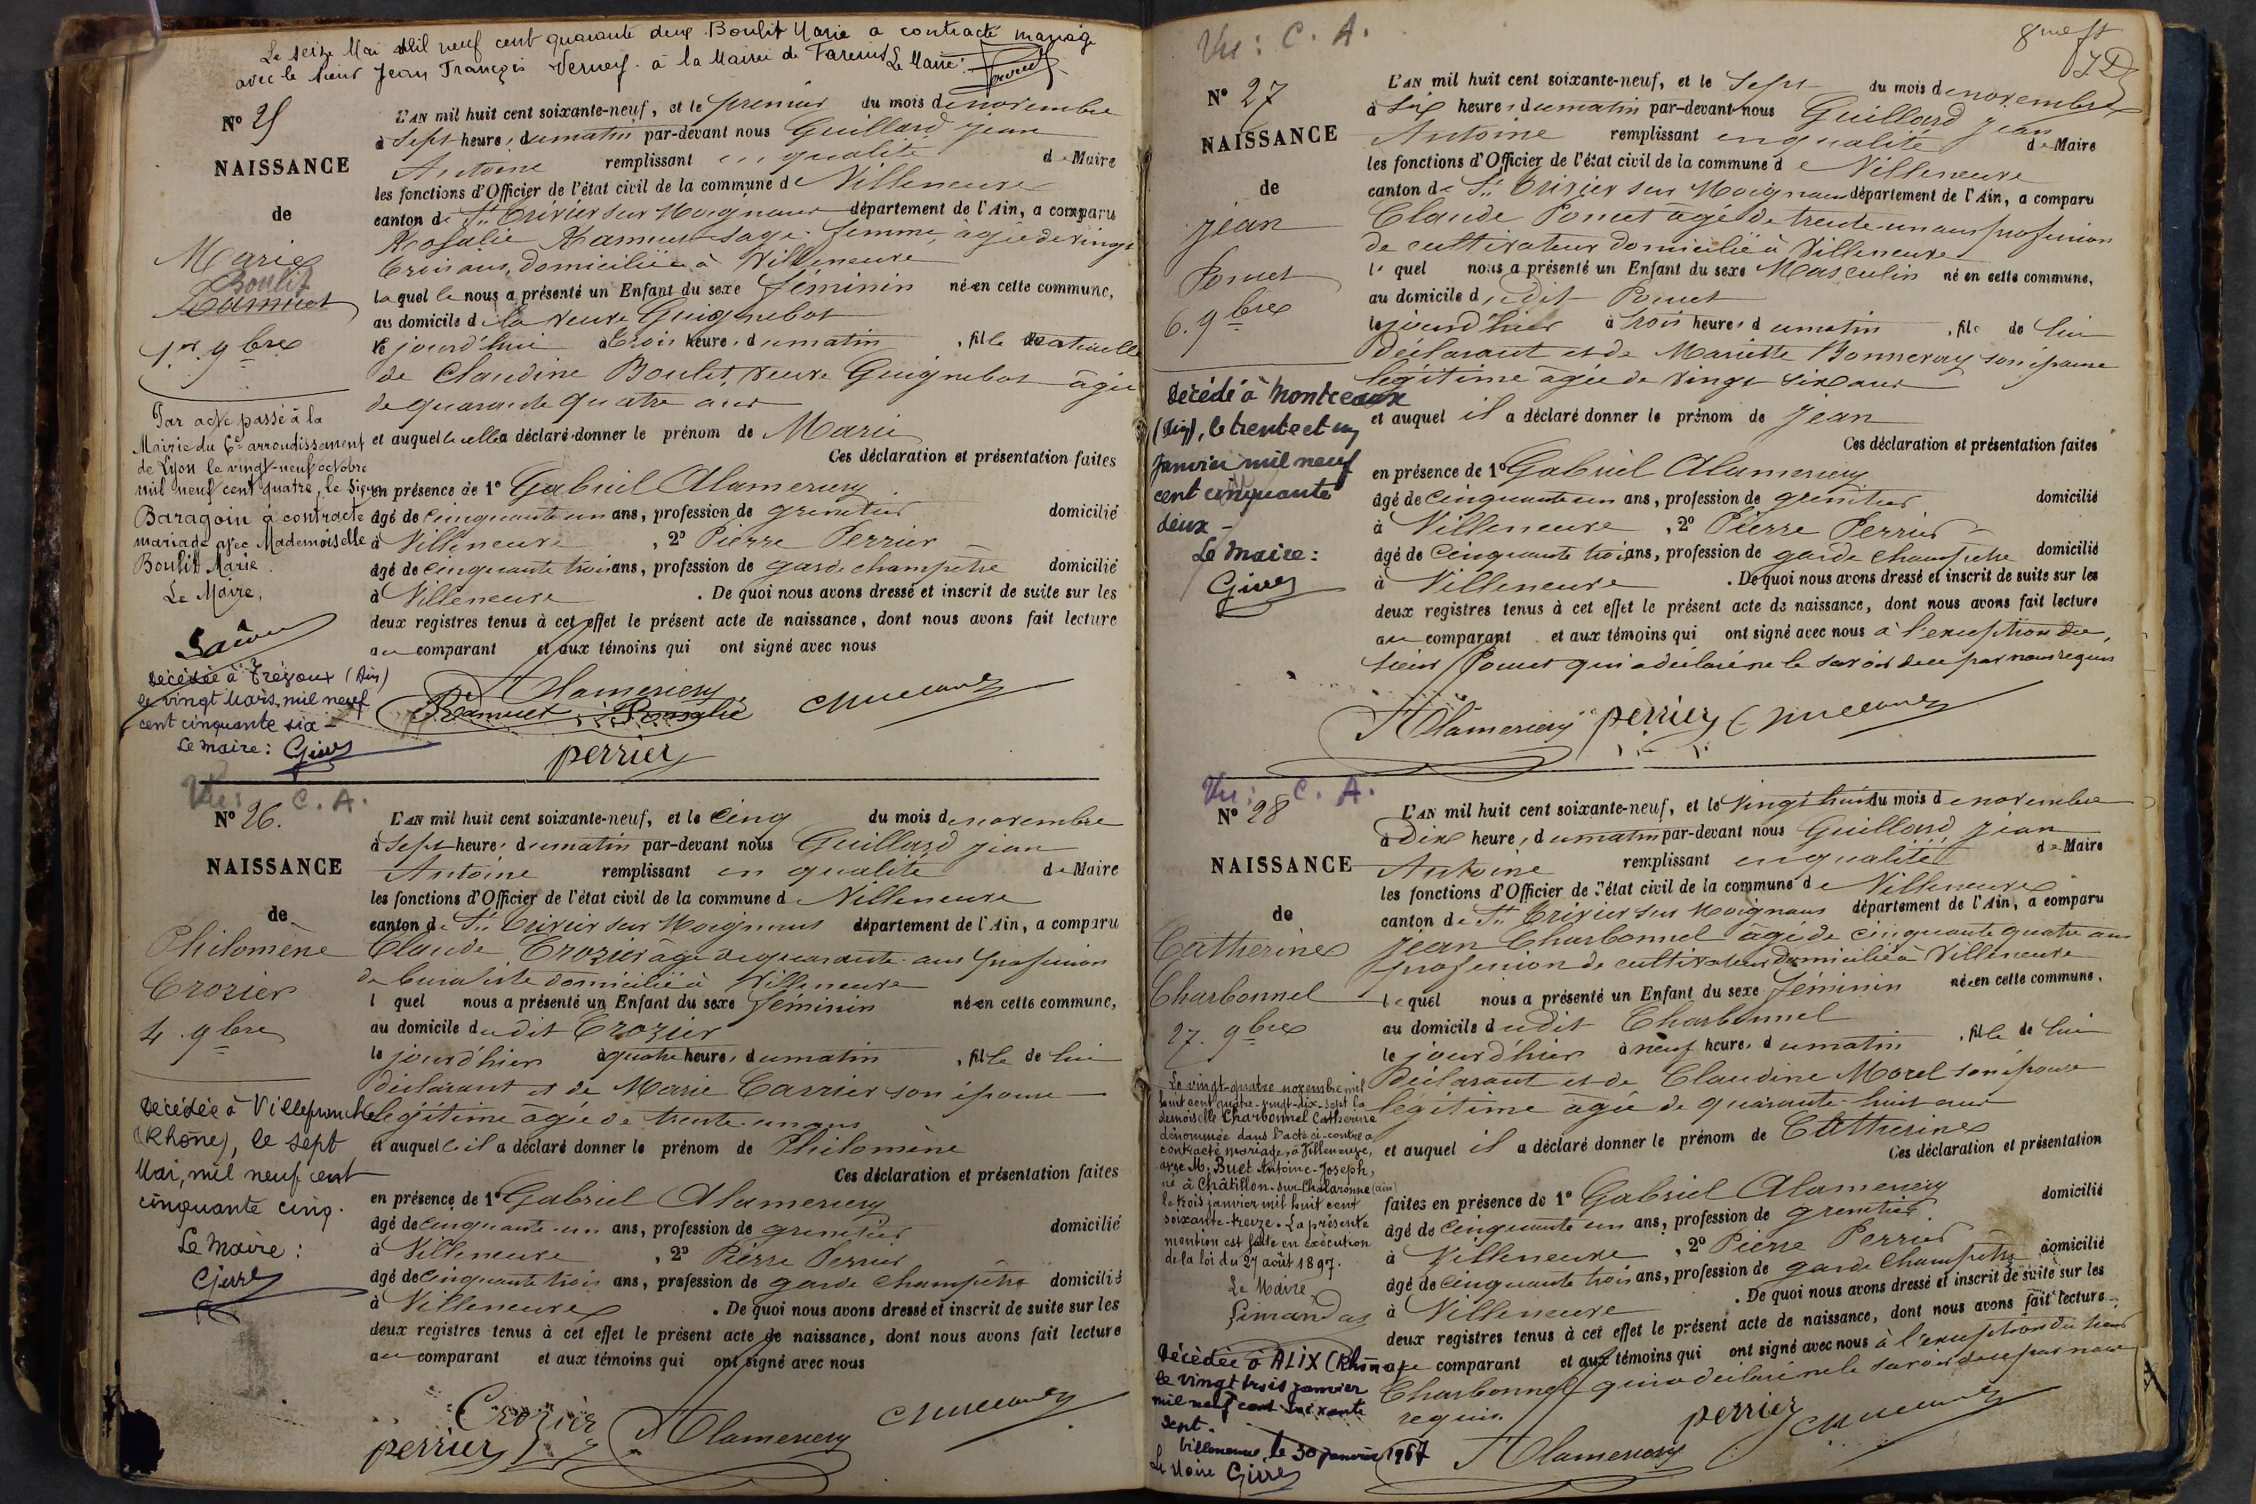 Le seize Mai Mil neuf cent quarante deux Boulit Marie a contracté mariage
avec le Sieur Jean François Verney à la Mairie de Fareins Le Maire:
N° 25
NAISSANCE
de
Marie
Boulit
Ramuet
1er 9bre
Par acte passé à la
Mairie du 6e arrondissement
de Lyon le vingt-neuf octobre
mil neuf cent quatre, le Sieur
Baragoin a contracté
mariage avec Mademoiselle
Boulit Marie.
Le Maire,
Décédée à Trévoux (Ain)
le vingt Mars, mil neuf
cent cinquante six -
Le maire:
L'AN mil huit cent soixante-neuf, et le premier du mois de novembre
à Sept heures du matin par-devant nous Guillard jean
Antoine remplissant en qualité de Maire
les fonctions d'Officier de l'état civil de la commune de Villeneuve
canton de St. Trivier sur Moignans département de l'Ain, a comparu
Rosalie Ramuet sage-femme, agée de vingt
trois ans, domiciliée à Villeneuve
la quelle nous a présenté un Enfant du sexe féminin né en cette commune,
au domicile de la veuve Guignebot
le jourd'hui à trois heures du matin, fille naturelle
de Claudine Boulit, veuve Guignebot âgée
de quarante quatre ans
et auquel elle a déclaré donner le prénom de Marie
Ces déclaration et présentation faites
en présence de 1° Gabriel Alamercery
âgé de cinquante un ans, profession de grenetier domicilié
à Villeneuve, 2° Pierre Perrier
âgé de cinquante trois ans, profession de garde champêtre domicilié
à Villeneuve. De quoi nous avons dressé et inscrit de suite sur les
deux registres tenus à cet effet le présent acte de naissance, dont nous avons fait lecture
au comparant et aux témoins qui ont signé avec nous
Alamercery
Ramuet Rosalie
perrier
Vu: C. A.
N° 26.
NAISSANCE
de
Philomène
Crozier
4. 9bre
Décédée à Villefranche
(Rhône), le sept
Mai, mil neuf cent
cinquante cinq.
Le Maire:
L'AN mil huit cent soixante-neuf, et le cinq du mois de novembre
à Sept heures du matin par-devant nous Guillard jean
Antoine remplissant en qualité de Maire
les fonctions d'Officier de l'état civil de la commune de Villeneuve
canton de St. Trivier sur Moignans département de l'Ain, a comparu
Claude Crozier âgé de quarante ans profession
de buraliste domicilié à Villeneuve
l quel nous a présenté un Enfant du sexe féminin né en cette commune,
au domicile dudit Crozier
le jour d'hier à quatre heures du matin, fille de lui
déclarant et de Marie Carrier son épouse
légitime âgée de trente un ans
et auquel il a déclaré donner le prénom de Philomène
Ces déclaration et présentation faites
en présence de 1° Gabriel Alamercery
âgé de cinquante un ans, profession de grenetier domicilié
à Villeneuve, 2° Pierre Perrier
âgé de cinquante trois ans, profession de garde champêtre domicilié
à Villeneuve. De quoi nous avons dressé et inscrit de suite sur les
deux registres tenus à cet effet le présent acte de naissance, dont nous avons fait lecture
au comparant et aux témoins qui ont signé avec nous
Crozier
perrier Alamercery
Vu: C. A.
N° 27
NAISSANCE
de
jean
Pomet
6. 9bre
Décédé à Montceaux
(Ain), le trente et un
Janvier mil neuf
cent cinquante
deux -
Le Maire:
L'AN mil huit cent soixante-neuf, et le Sept du mois de novembre
à Six heures du matin par-devant nous Guillard jean
Antoine remplissant en qualité de Maire
les fonctions d'Officier de l'état civil de la commune de Villeneuve
canton de St. Trivier sur Moignans département de l'Ain, a comparu
Claude Pomet âgé de trente un ans profession
de cultivateur domicilié à Villeneuve
le quel nous a présenté un Enfant du sexe Masculin né en cette commune,
au domicile dudit Pomet
le jour d'hier à trois heures du matin, fils de lui
déclarant et de Mariette Bonnevay son épouse
légitime âgée de vingt six ans
et auquel il a déclaré donner le prénom de jean
Ces déclaration et présentation faites
en présence de 1° Gabriel Alamercery
âgé de cinquante un ans, profession de grenetier domicilié
à Villeneuve, 2° Pierre Perrier
âgé de cinquante trois ans, profession de garde champêtre domicilié
à Villeneuve. De quoi nous avons dressé et inscrit de suite sur les
deux registres tenus à cet effet le présent acte de naissance, dont nous avons fait lecture
au comparant et aux témoins qui ont signé avec nous à l'exception du
sieur Pomet qui a déclaré ne le savoir de ce par nous requis
Alamercery perrier
Vu: C. A.
N° 28
NAISSANCE
de
Catherine
Charbonnel
27. 9bre
Le vingt-quatre novembre mil
huit cent quatre-vingt-dix-sept la
demoiselle Charbonnel Catherine
dénommée dans l'acte ci-contre a
contracté mariage, à Villeneuve,
avec M. Buet Antoine-Joseph,
né à Châtillon-sur-Chalaronne (ain)
le trois janvier mil huit cent
soixante-treize. La présente
mention est faite en exécution
de la loi du 27 août 1897.
Le Maire,
Limandas
Décédée à ALIX (Rhône)
le vingt trois janvier
mil neuf cent soixante
sept.
Villeneuve, le 30 janvier 1967
Le Maire
L'AN mil huit cent soixante-neuf, et le vingt huit du mois de novembre
à Dix heures du matin par-devant nous Guillard jean
Antoine remplissant en qualité de Maire
les fonctions d'Officier de l'état civil de la commune de Villeneuve
canton de St. Trivier sur Moignans département de l'Ain, a comparu
jean Charbonnel âgé de cinquante quatre ans
profession de cultivateur domicilié à Villeneuve
le quel nous a présenté un Enfant du sexe féminin née en cette commune.
au domicile dudit Charbonnel
le jour d'hier à neuf heures du matin, fille de lui
déclarant et de Claudine Morel son épouse
légitime âgée de quarante-huit ans
et auquel il a déclaré donner le prénom de Catherine
Ces déclaration et présentation
faites en présence de 1° Gabriel Alamercery
âgé de cinquante un ans, profession de grenetier domicilié
à Villeneuve, 2° Pierre Perrier
âgé de cinquante trois ans, profession de garde champêtre domicilié
à Villeneuve. De quoi nous avons dressé et inscrit de suite sur les
deux registres tenus à cet effet le présent acte de naissance, dont nous avons fait lecture
au comparant et aux témoins qui ont signé avec nous à l'exception du sieur
Charbonnel qui a déclaré ne le savoir de ce par nous
requis.
perrier
Alamercery